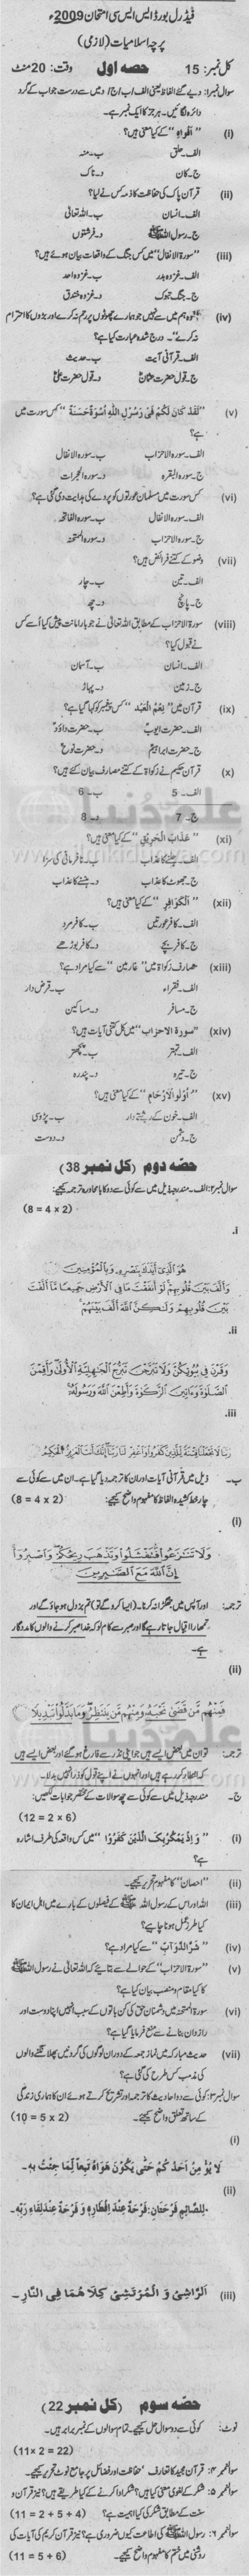 فیڈرل بورڈ ایس ایس سی امتحان 2009ء
پرچہ اسلامیات (لازمی)
کل نمبر: 15 حصہ اول وقت: 20 منٹ
سوال نمبر1: دیے گئے الفاظ یعنی الف/ب/ج/د میں سے درست جواب کے گرد
دائرہ لگائیں۔ ہر جز کا ایک نمبر ہے۔
(i) "اَفْوَاہٌ" کے کیا معنی ہیں؟
الف۔ حلق ب۔ منہ
ج۔ کان د۔ ناک
(ii) قرآن پاک کی حفاظت کا ذمہ کس نے لیا؟
الف۔ انسان ب۔ اللہ تعالیٰ
ج۔ رسول اللہ ﷺ د۔ فرشتوں
(iii) "سورۃ الانفال" میں کس جنگ کے واقعات بیان ہوئے ہیں؟
الف۔ غزوہ بدر ب۔ غزوہ احد
ج۔ جنگ تبوک د۔ غزوہ خندق
(iv) "وہ ہم میں سے نہیں جو ہمارے چھوٹوں پر رحم نہ کرے اور بڑوں کا احترام
نہ کرے"۔ درج شدہ عبارت کیا ہے؟
الف۔ قرآنی آیت ب۔ حدیث
ج۔ قول حضرت عثمانؓ د۔ قول حضرت علیؓ
(v) "لَقَدْ كَانَ لَكُمْ فِيْ رَسُوْلِ اللّٰهِ اُسْوَةٌ حَسَنَةٌ" کس سورت میں
ہے؟
الف۔ سورہ الاحزاب ب۔ سورہ الانفال
ج۔ سورہ البقرہ د۔ سورہ الحجرات
(vi) کس سورت میں مسلمان عورتوں کو پردے کی ہدایت دی گئی ہے؟
الف۔ سورہ الانفال ب۔ سورہ الفاتحہ
ج۔ سورہ الاحزاب د۔ سورہ الممتحنہ
(vii) وضو کے کتنے فرائض ہیں؟
الف۔ تین ب۔ چار
ج۔ پانچ د۔ چھ
(viii) سورۃ الاحزاب کے مطابق اللہ تعالیٰ نے جو بار امانت پیش کیا اُسے کس
نے قبول کیا؟
الف۔ انسان ب۔ آسمان
ج۔ زمین د۔ پہاڑ
(ix) قرآن میں "نِعْمَ الْعَبْدُ" کس پیغمبر کو کہا گیا ہے؟
الف۔ حضرت ایوبؑ ب۔ حضرت داؤدؑ
ج۔ حضرت ابراہیمؑ د۔ حضرت نوحؑ
(x) قرآن حکیم نے زکوۃ کے کتنے مصارف بیان کئے ہیں؟
الف۔ 5 ب۔ 6
ج۔ 7 د۔ 8
(xi) "عَذَابَ الْحَرِيْقِ" کے کیا معنی ہیں؟
الف۔ جلنے کا عذاب ب۔ نافرمانی کی سزا
ج۔ جھوٹ کا عذاب د۔ ہنسنے کا عذاب
(xii) "اَلْكَوَافِرِ" کے کیا معنی ہیں؟
الف۔ کافر عورتیں ب۔ کافر مرد
ج۔ کافر بچے د۔ کافر بوڑھے
(xiii) مصارف زکوۃ میں "غارمین" سے کیا مراد ہے؟
الف۔ فقراء ب۔ قرض دار
ج۔ مسافر د۔ مساکین
(xiv) "سورۃ الاحزاب" میں کل کتنی آیات ہیں؟
الف۔ تہتر ب۔ پچھتر
ج۔ تیرہ د۔ پندرہ
(xv) "اُولُوا الْاَرْحَامِ" کے کیا معنی ہیں؟
الف۔ خون کے رشتے دار ب۔ پڑوسی
ج۔ دشمن د۔ دوست
حصہ دوم (کل نمبر 38)
سوال نمبر۲: الف۔ مندرجہ ذیل میں سے کوئی سے دو کا بامحاورہ ترجمہ کیجیے:
(8 = 4 x 2)
i.
هُوَ الَّذِيْ اَيَّدَكَ بِنَصْرِهٖ وَبِالْمُؤْمِنِيْنَ
وَاَلَّفَ بَيْنَ قُلُوْبِهِمْ لَوْ اَنْفَقْتَ مَا فِي الْاَرْضِ جَمِيْعًا مَّا اَلَّفْتَ
بَيْنَ قُلُوْبِهِمْ وَلٰكِنَّ اللّٰهَ اَلَّفَ بَيْنَهُمْ
ii.
وَقَرْنَ فِيْ بُيُوْتِكُنَّ وَلَا تَبَرَّجْنَ تَبَرُّجَ الْجَاهِلِيَّةِ الْاُوْلٰى وَاَقِمْنَ
الصَّلٰوةَ وَاٰتِيْنَ الزَّكٰوةَ وَاَطِعْنَ اللّٰهَ وَرَسُوْلَهٗ
iii.
رَبَّنَا لَا تَجْعَلْنَا فِتْنَةً لِّلَّذِيْنَ كَفَرُوْا وَاغْفِرْ لَنَا رَبَّنَا اِنَّكَ اَنْتَ الْعَزِيْزُ الْحَكِيْمُ
ب۔ ذیل میں قرآنی آیات اور ان کا ترجمہ دیا گیا ہے۔ ان میں سے کوئی سے
چار خط کشیدہ الفاظ کا مفہوم واضح کیجیے: (8 = 4 x 2)
(i)
وَلَا تَنَازَعُوْا فَتَفْشَلُوْا وَتَذْهَبَ رِيْحُكُمْ وَاصْبِرُوْا
اِنَّ اللّٰهَ مَعَ الصّٰبِرِيْنَ
ترجمہ: اور آپس میں جھگڑا نہ کرنا۔ (ایسا کرو گے تو) تم بزدل ہو جاؤ گے اور
تمھارا اقبال جاتا رہے گا اور صبر سے کام لو کہ خدا صبر کرنے والوں کا مددگار
ہے۔
(ii)
فَمِنْهُمْ مَّنْ قَضٰى نَحْبَهٗ وَمِنْهُمْ مَّنْ يَّنْتَظِرُ وَمَا بَدَّلُوْا تَبْدِيْلًا
ترجمہ: تو ان میں بعض ایسے ہیں جو اپنی نذر سے فارغ ہو گئے اور بعض ایسے ہیں
کہ انتظار کر رہے ہیں اور انہوں نے اپنے قول کو ذرا نہیں بدلا۔
ج۔ مندرجہ ذیل میں سے کوئی سے چھ سوالات کے مختصر جوابات لکھیں:
(12 = 2 x 6)
(i) "وَ اِذْ يَمْكُرُ بِكَ الَّذِيْنَ كَفَرُوْا" میں کس واقعہ کی طرف اشارہ
ہے؟
(ii) "احسان" کا مفہوم تحریر کیجیے۔
(iii) اللہ اور اس کے رسول اللہ ﷺ کے فیصلوں کے بارے میں اہل ایمان کا
کیا طرز عمل ہونا چاہیے؟
(iv) "شَرَّ الدَّوَآبِّ" سے کیا مراد ہے؟
(v) "سورۃ الاحزاب" کے حوالے سے بتائیے کہ اللہ تعالیٰ نے رسول اللہ ﷺ
کا کیا مقام و منصب بیان کیا ہے؟
(vi) سورۃ الممتحنہ میں دشمنان حق کی کن باتوں کے سبب انہیں اپنا دوست اور
رازدان بنانے سے منع فرمایا گیا ہے؟
(vii) حدیث مبارکہ میں نماز جمعہ کے دوران لوگوں کی گردنیں پھلانگنے والوں
کی مذمت کس طرح کی گئی ہے؟
سوال نمبر۳: کوئی سے دو احادیث کا ترجمہ اور تشریح کرتے ہوئے ان کا ہماری زندگی
کے ساتھ تعلق واضح کیجئے۔ (10 = 5 x 2)
(i)
لَا يُؤْ مِنُ اَحَدُ كُمْ حَتّٰى يَكُوْنَ هَوَاهُ تَبَعاً لِّمَا جِئْتُ بِهٖ۔
(ii)
لِلصَّائِمِ فَرْحَتَانِ: فَرْحَةٌ عِنْدَ اِفْطَارِهٖ وَ فَرْحَةٌ عِنْدَ لِقَاءِ رَبِّهٖ۔
(iii) اَلرَّاشِيْ وَ الْمُرْتَشِيْ كِلَا هُمَا فِي النَّارِ۔
حصہ سوم (کل نمبر 22)
نوٹ: کوئی سے دو سوال حل کیجیے۔ تمام سوالوں کے نمبر برابر ہیں۔
(11x 2 = 22)
سوال نمبر ۴: قرآن مجید کا تعارف، حفاظت اور فضائل پر جامع نوٹ تحریر کیجیے۔
سوال نمبر ۵: شکر کے لغوی معنی کیا ہیں؟ شکر ادا کرنے کے کیا طریقے ہیں؟ نیز قرآن و
سنت کے مطابق شکر کی کیا اہمیت ہے؟ (11 = 2 + 5 + 4)
سوال نمبر ۶: رسول اللہ ﷺ کی اطاعت کیوں ضروری ہے؟ نیز قرآن کریم کی آیات کی
روشنی میں ختم کا مفہوم واضح کیجیے۔ (11 = 5 + 6)